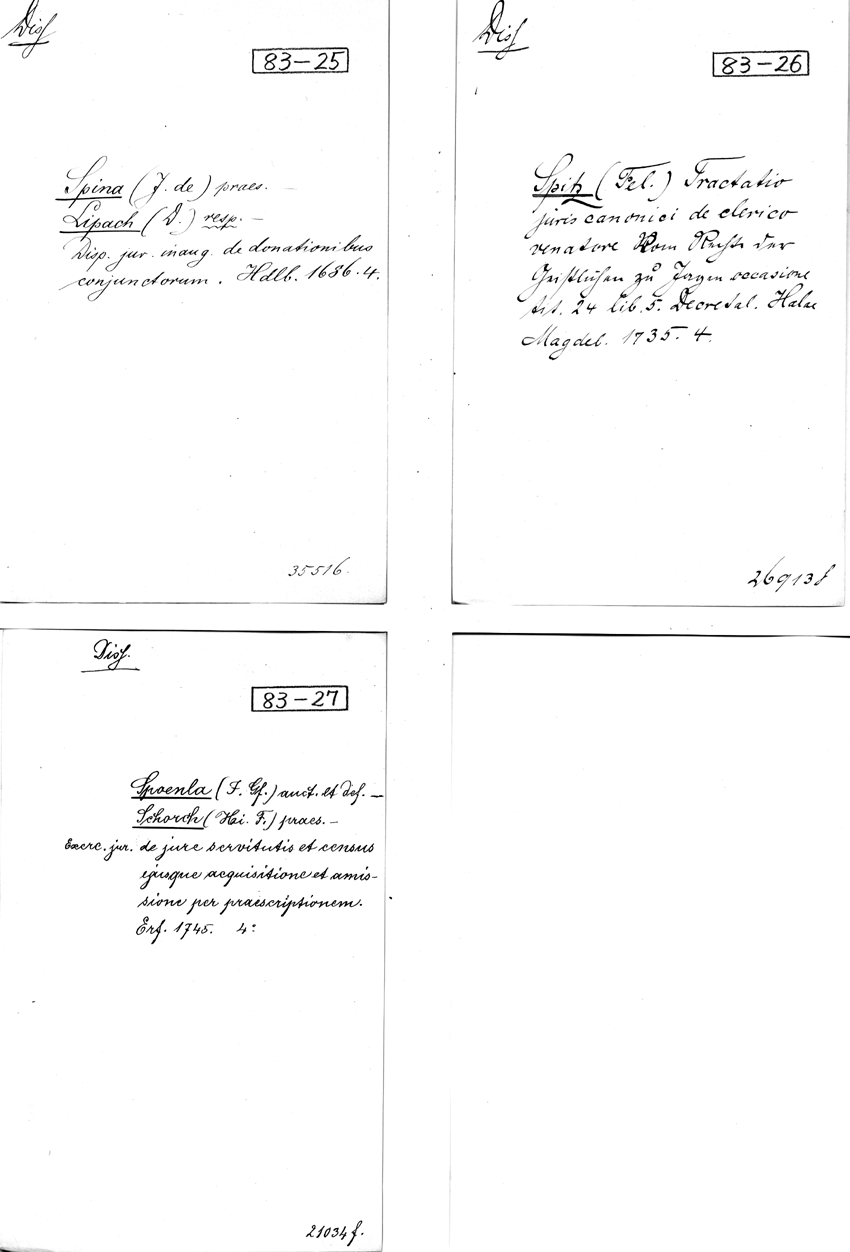 Diss
83-25
Spina (J. de) praes. —
Lipach (D.) resp. —
Disp. jur. inaug. de donationibus
conjunctorum. Hdlb. 1636. 4.
35516.
Diss
83-26
Spitz (Fel.) Tractatio
juris canonici de clerico
venatore Vom Rechte der
Geistlichen zu Jagen occasione
tit. 24 lib. 5. Decretal. Halae
Magdeb. 1735. 4.
26913f
Diss.
83-27
Spoenla (F. Gf.) auct. et def. —
Schorch (Hi. F.) praes. —
Exerc. jur. de jure servitutis et census
ejusque acquisitione et amis-
sione per praescriptionem.
Erf. 1745. 4:
21034f.